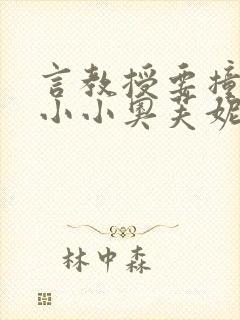 言教授要撞
小小奥芙妮
林中森